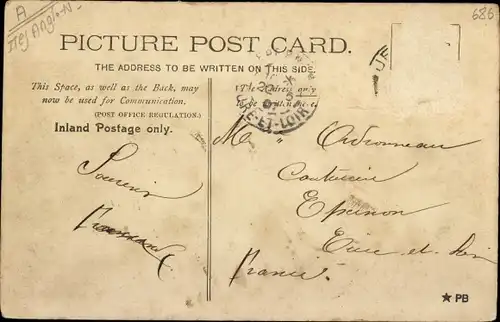 A
Iles Anglo-N.
686
PICTURE POST CARD.
THE ADDRESS TO BE WRITTEN ON THIS SIDE.
This Space, as well as the Back, may
now be used for Communication.
(POST OFFICE REGULATION.)
Inland Postage only.
The Address only
to be written here.
EURE-ET-LOIR
M " Ardonneau
Couturier
Epernon
Eure et Loir
France.
Souvenir
★ PB